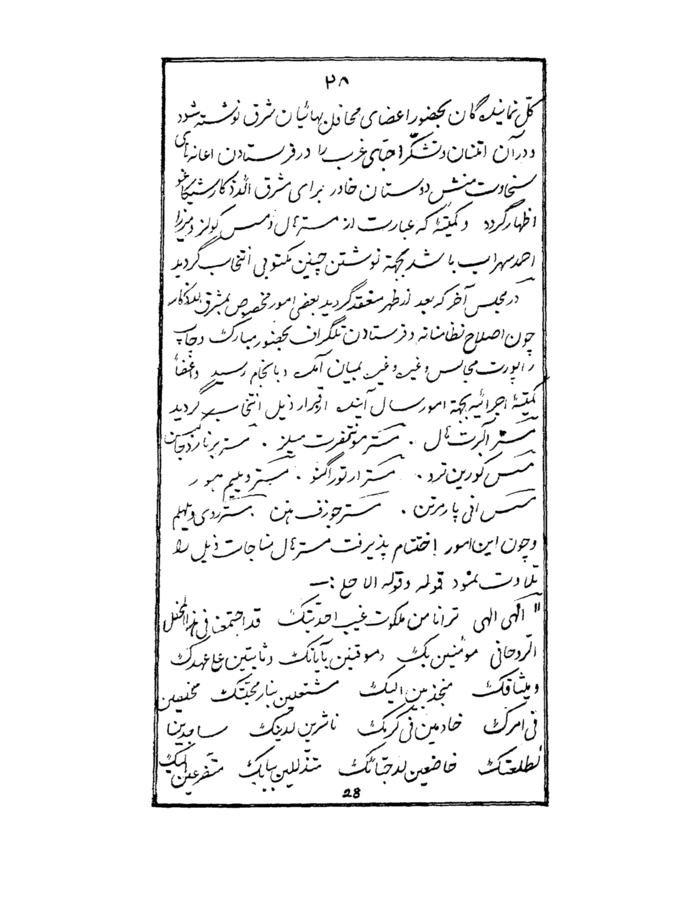 ۲۸
کلّ نمایندگان بحضور اعضای محافل بهائیان شرق نوشته شود
و در آن امتنان و تشکّر احبّای غرب را در فرستادن اعانه‌های
سخاوت منش دوستان خاور برای مشرق الاذکار شیکاغو
اظهار گردد و کمیتهٔ که عبارت از مستر هال و مس کولز و میرزا
احمد سهراب باشد بجهة نوشتن چنین مکتوبی انتخاب گردید
در مجلس آخر که بعد از ظهر منعقد گردید بعضی امور مخصوص بمشرق الاذکار
چون اصلاح نظامنامه و فرستادن تلگراف بحضور مبارک و چاپ
راپورت مجالس و غیره و غیره بمیان آمد و بانجام رسید و اعضا
کمیتهٔ اجرائیه بجهة امور سال آینده از قرار ذیل انتخاب گردید
مستر آلبرت هال . مستر مونتفرت میلز . مستر برنارد جاکبسن
مس کورین ترو . مستر ارتور اگنو . مستر ویلیم هور
مسس انی پارمرتن . مستر جوزف هنن . مستر روی ویلهلم
و چون این امور اختتام پذیرفت مستر هال مناجات ذیل را
تلاوت نمود قوله و قوله الاحلی :—
" الهی الهی ترانا من ملکوت غیب احدیّتک قد اجتمعنا فی هذا المحفل
الرّوحانی مؤمنین بک و موقنین بآیاتک و ثابتین علی عهدک
و میثاقک منجذبین الیک مشتعلین بنار محبّتک مخلصین
فی امرک خادمین فی کرمک ناشرین لدینک ساجدین
لطلعتک خاضعین لاحبّائک متذلّلین ببابک متضرّعین الیک
28